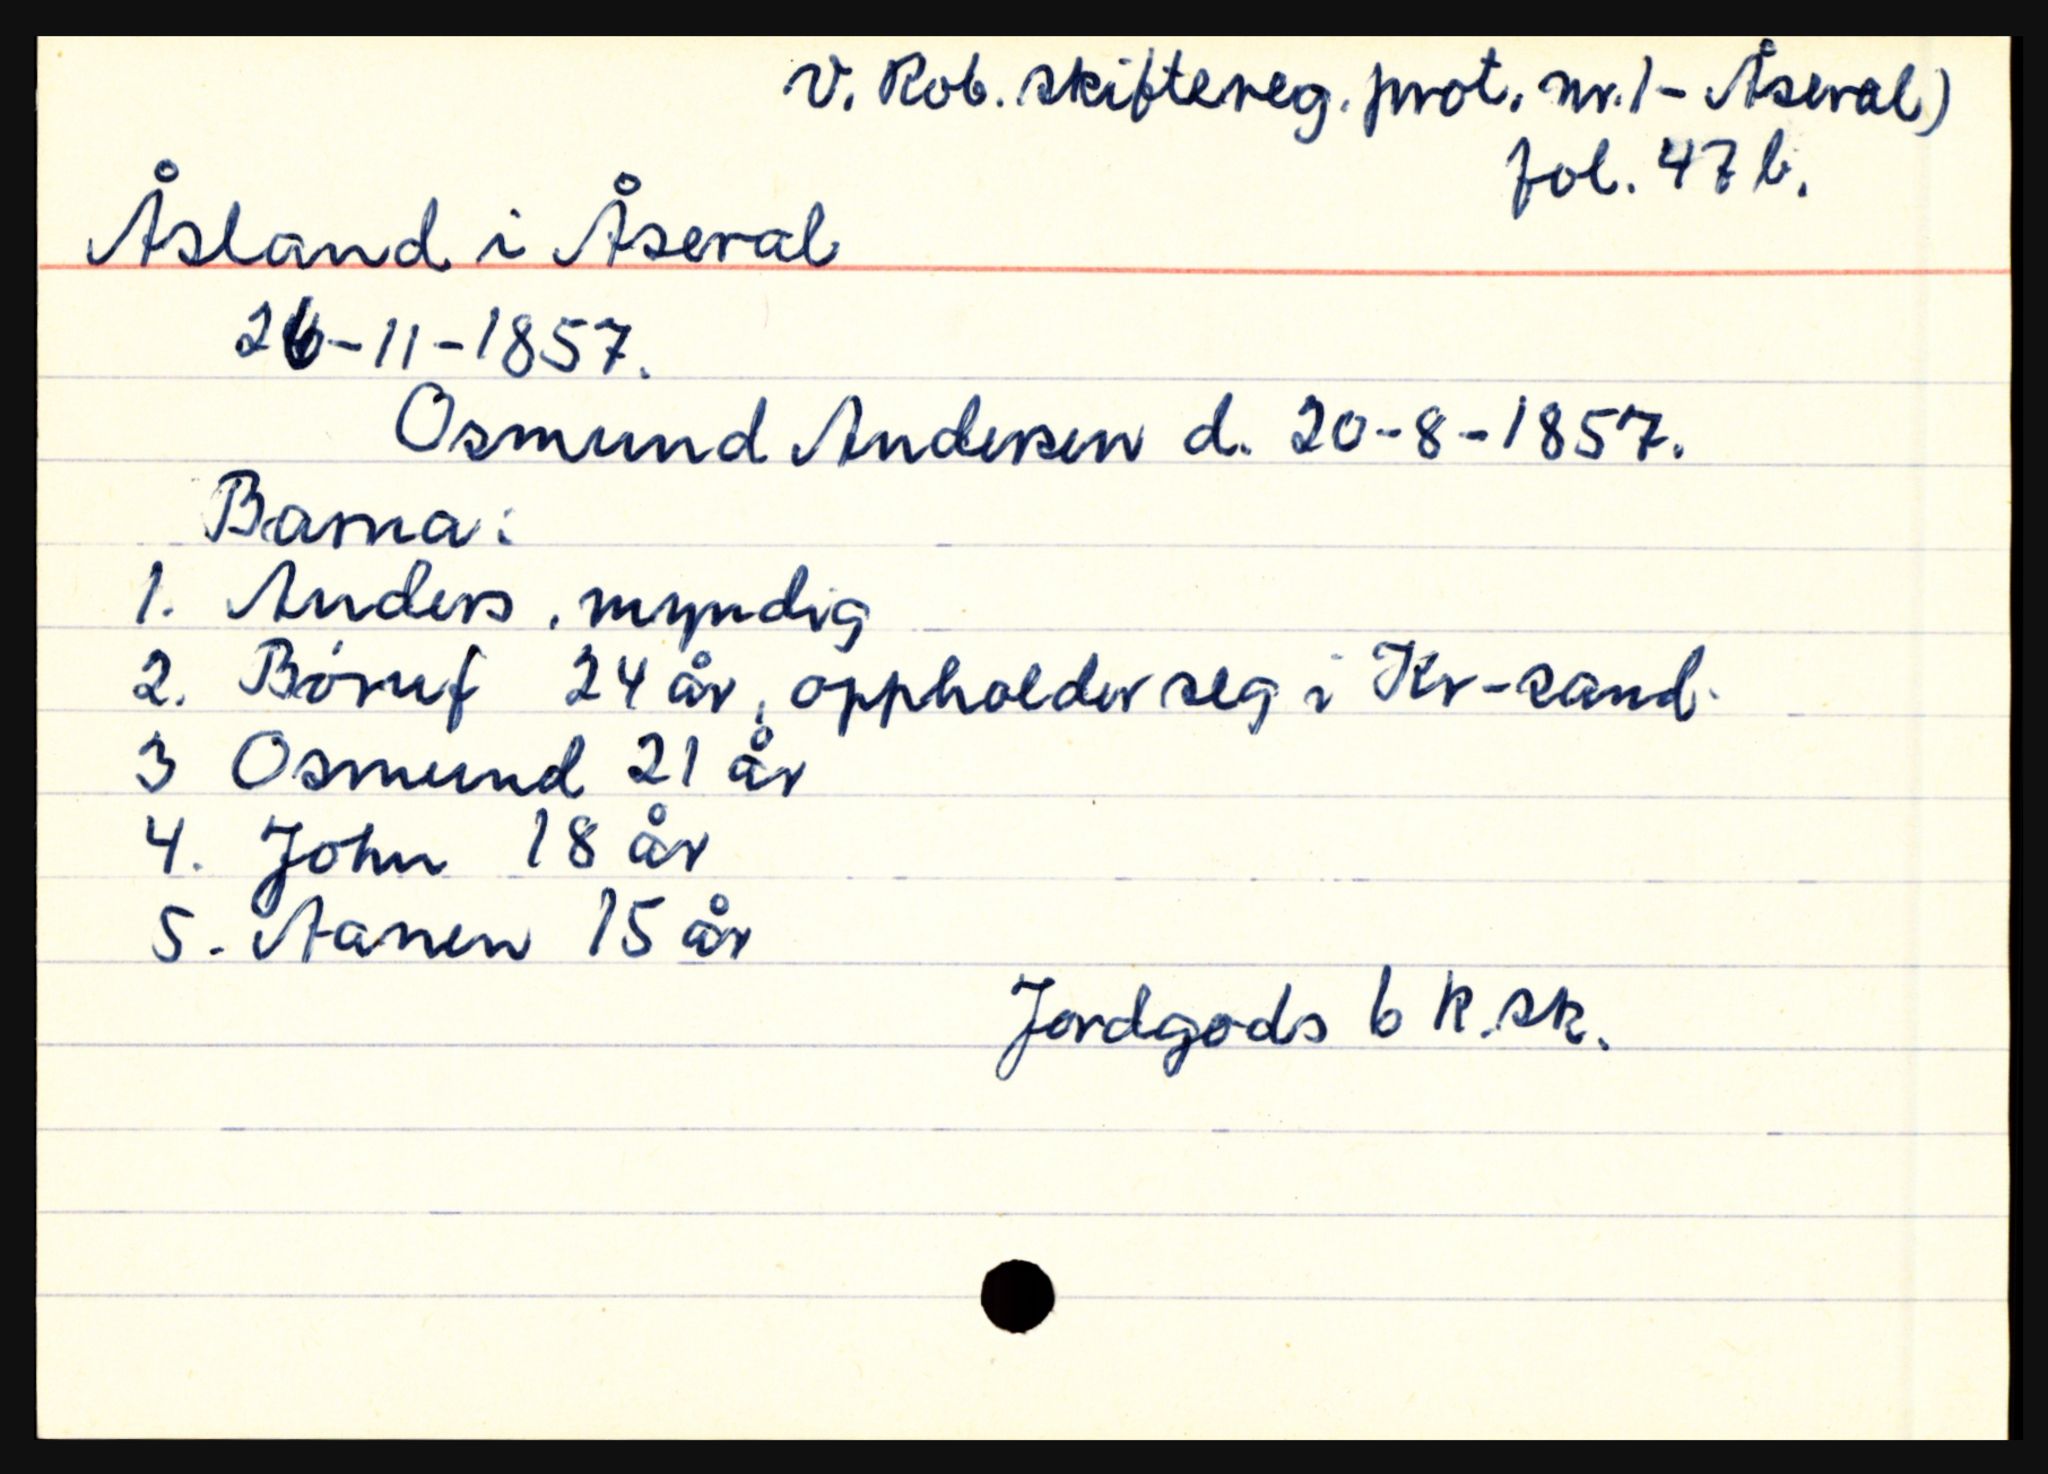 V. Rob. skiftereg. prot. nr. 1 - Åseral)
fol. 47 b.
Åsland i Åseral
26-11-1857.
Osmund Andersen d. 20-8-1857.
Barna:
1. Anders, myndig
2. Böruf 24 år, oppholder seg i Kr-sand.
3 Osmund 21 år
4. John 18 år
5. Aanen 15 år
Jordgods 6 k.sk.